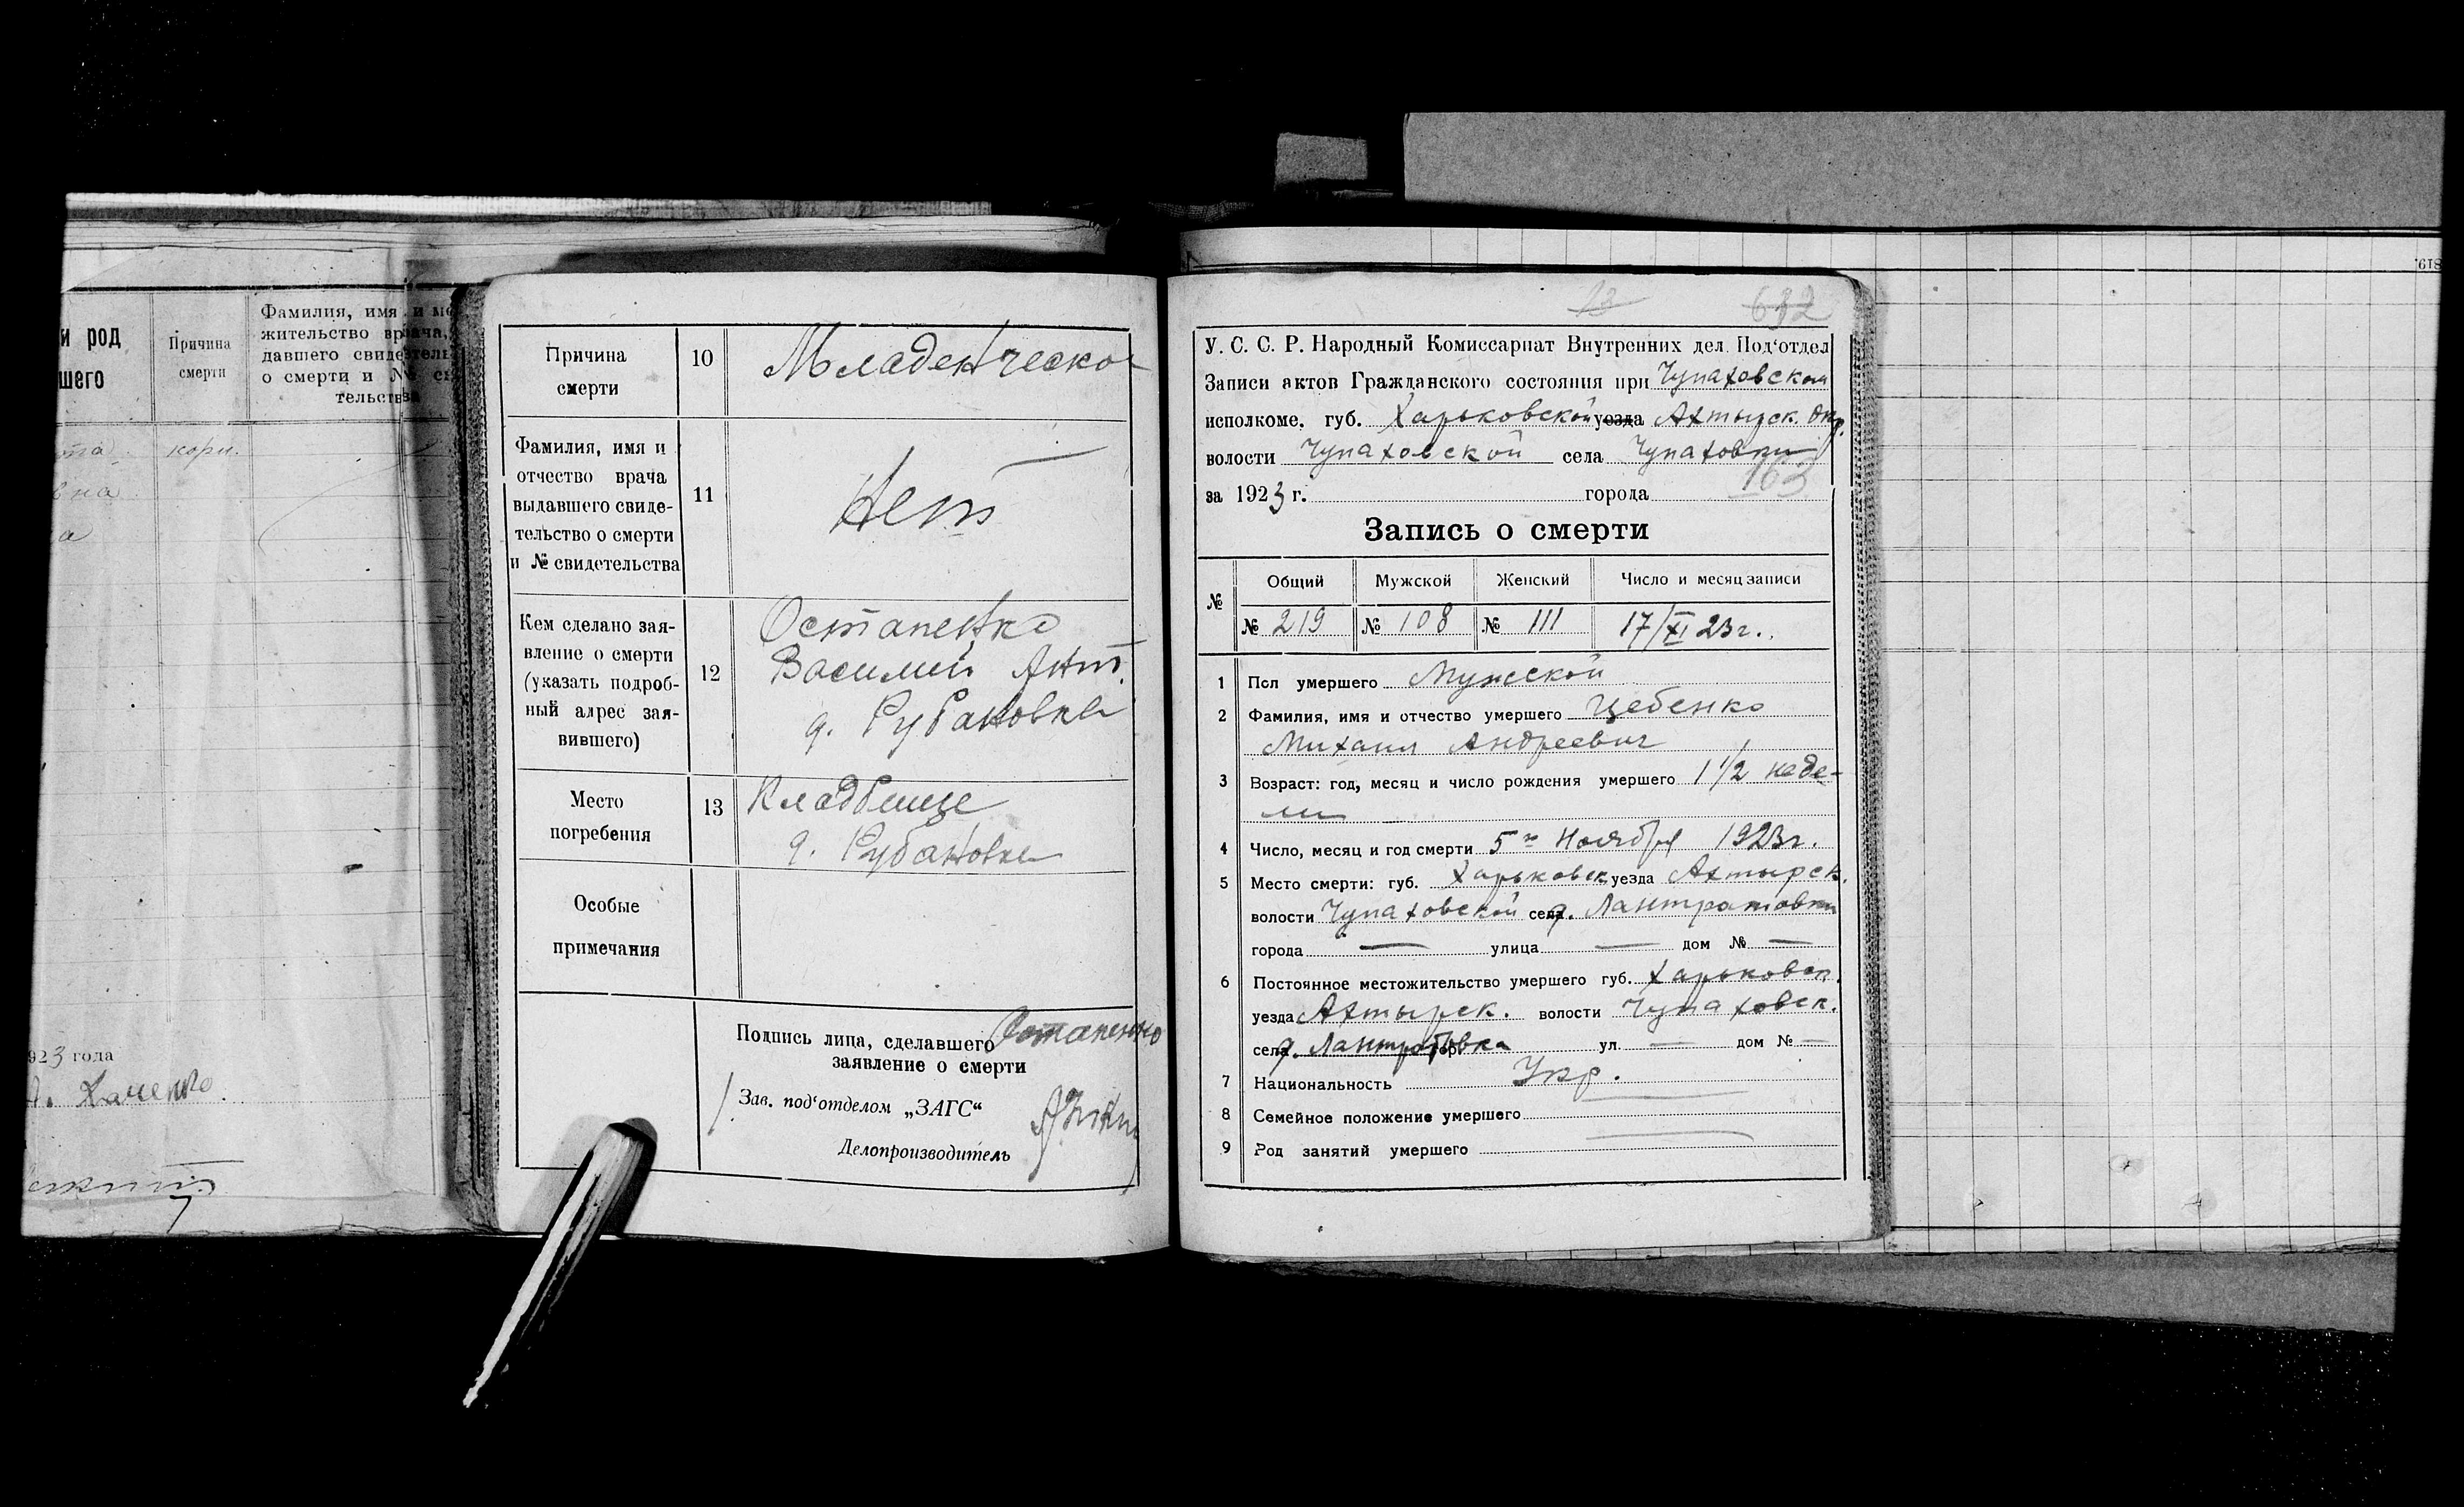 и род
шего
Причина
смерти
Фамилия, имя и ме
жительство врача,
давшего свидетель
о смерти и № св
тельства
кори.
вна
а
923 года
Причина
смерти
10
Младенческо
Фамилия, имя и
отчество врача
выдавшего свиде-
тельство о смерти
и № свидетельства
11
Нет
Кем сделано зая-
вление о смерти
(указать подроб-
ный адрес зая-
вившего)
12
Остапенко
Василий Ант.
д. Рубановка
Место
погребения
13
Кладбище
д. Рубановка
Особые
примечания
Подпись лица, сделавшего Остапенко
заявление о смерти
Зав. под‘отделом „ЗАГС“
Делопроизводитель
13 612
У. С. С. Р. Народный Комиссариат Внутренних дел. Под‘отдел
Записи актов Гражданского состояния при Чупаховском
исполкоме. губ. Харьковской уезда Ахтырск. Окр.
волости Чупаховской села Чупаховки
за 1923 г. города 163
Запись о смерти
№ Общий Мужской Женский Число и месяц записи
№ 219 № 108 № 111 17/XI 23г.
1 Пол умершего Мужской
2 Фамилия, имя и отчество умершего Цебенко
Михаил Андреевич
3 Возраст: год, месяц и число рождения умершего 1 1/2 неде-
ли
4 Число, месяц и год смерти 5го Ноября 1923г.
5 Место смерти: губ. Харьковск уезда Ахтырск.
волости Чупаховской села д. Лантратовки
города — улица — дом № —
6 Постоянное местожительство умершего губ. Харьковск.
уезда Ахтырск. волости Чупаховск.
села д. Лантратовка ул. — дом № —
7 Национальность Укр.
8 Семейное положение умершего
9 Род занятий умершего